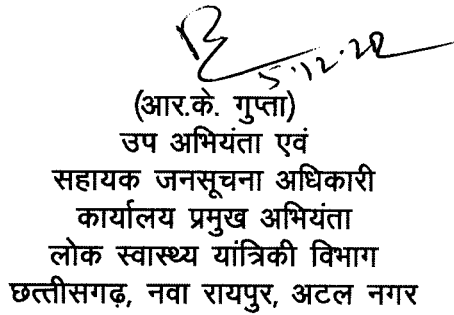 5.12.22
(आर.के. गुप्ता)
उप अभियंता एवं
सहायक जनसूचना अधिकारी
कार्यालय प्रमुख अभियंता
लोक स्वास्थ्य यांत्रिकी विभाग
छत्तीसगढ़, नवा रायपुर, अटल नगर